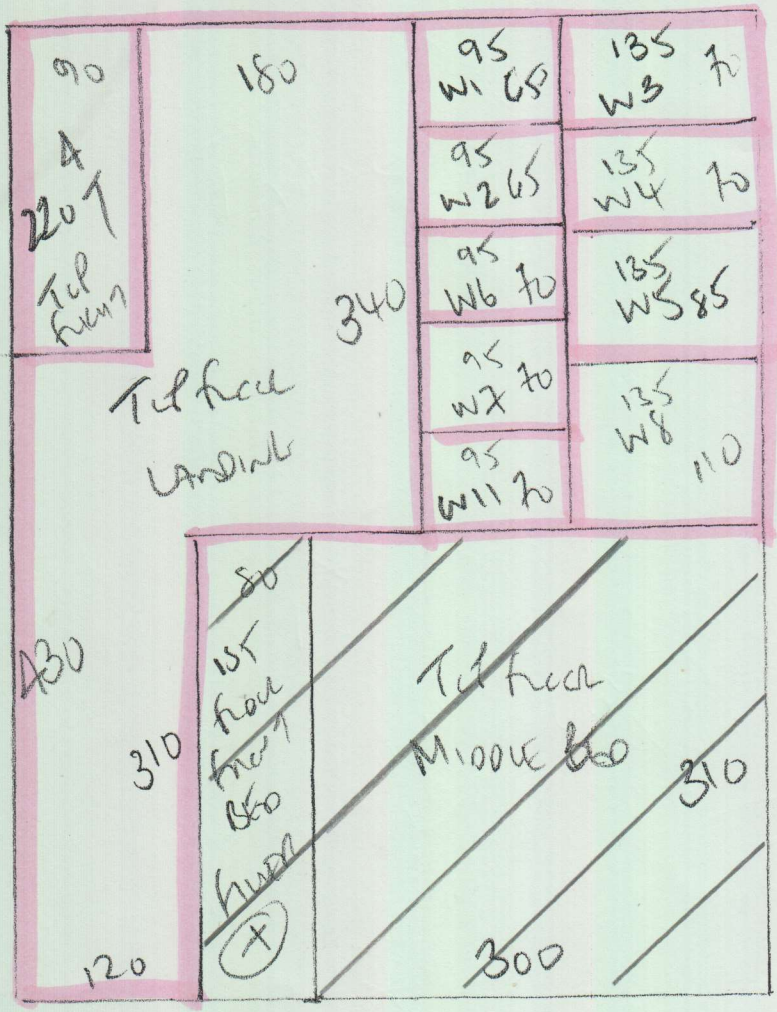 90
A
220
TOP
FRONT
180
340
TOP FLOOR
LANDING
430
310
120
95
W1 65
95
W2 65
95
W6 70
95
W7 70
95
W11 70
135
W3 70
135
W4 70
135
W5 85
135
W8
110
80
1ST
FLOOR
FRONT
BED
TOP FLOOR
MIDDLE BED
310
300